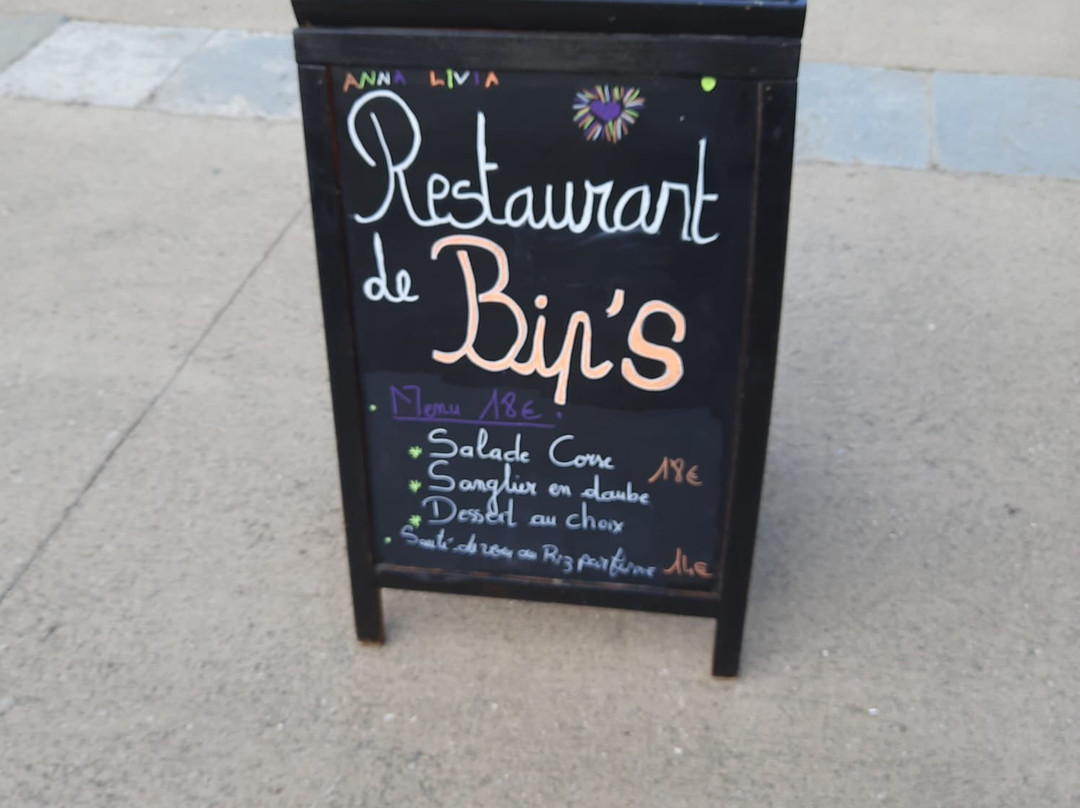 ANNA LIVIA
Restaurant
de Bip's
Menu 18€.
Salade Corse
18€
Sanglier en daube
Dessert au choix
Sauté de veau au Riz parfumé 14€